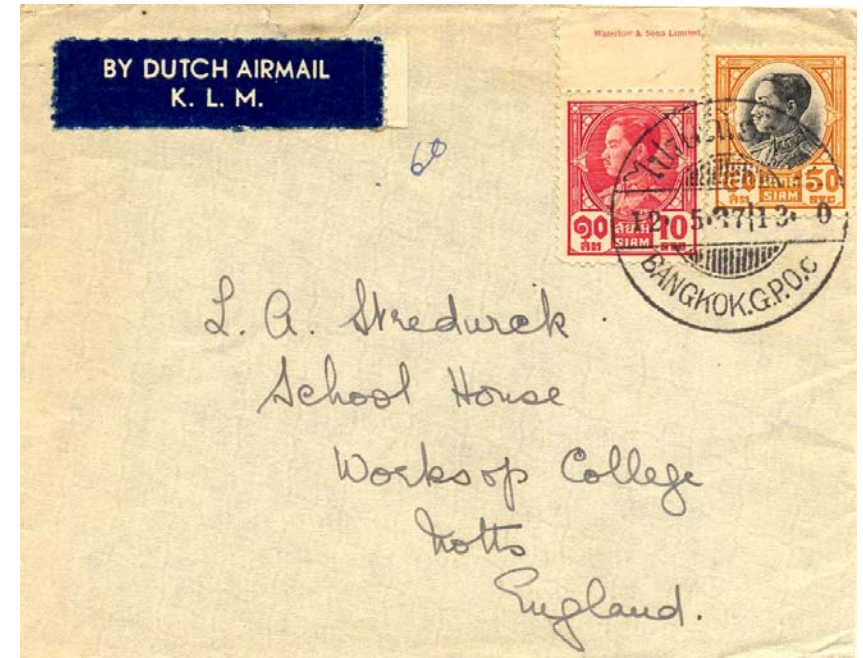 BY DUTCH AIRMAIL
K. L. M.
Waterlow & Sons Limited,
60
๑๐ สยาม 10
SIAM
50
SIAM
12. 5.37|13. 0
BANGKOK.G.P.O.C
L. A. Stredwick
School House
Worksop College
Notts
England.